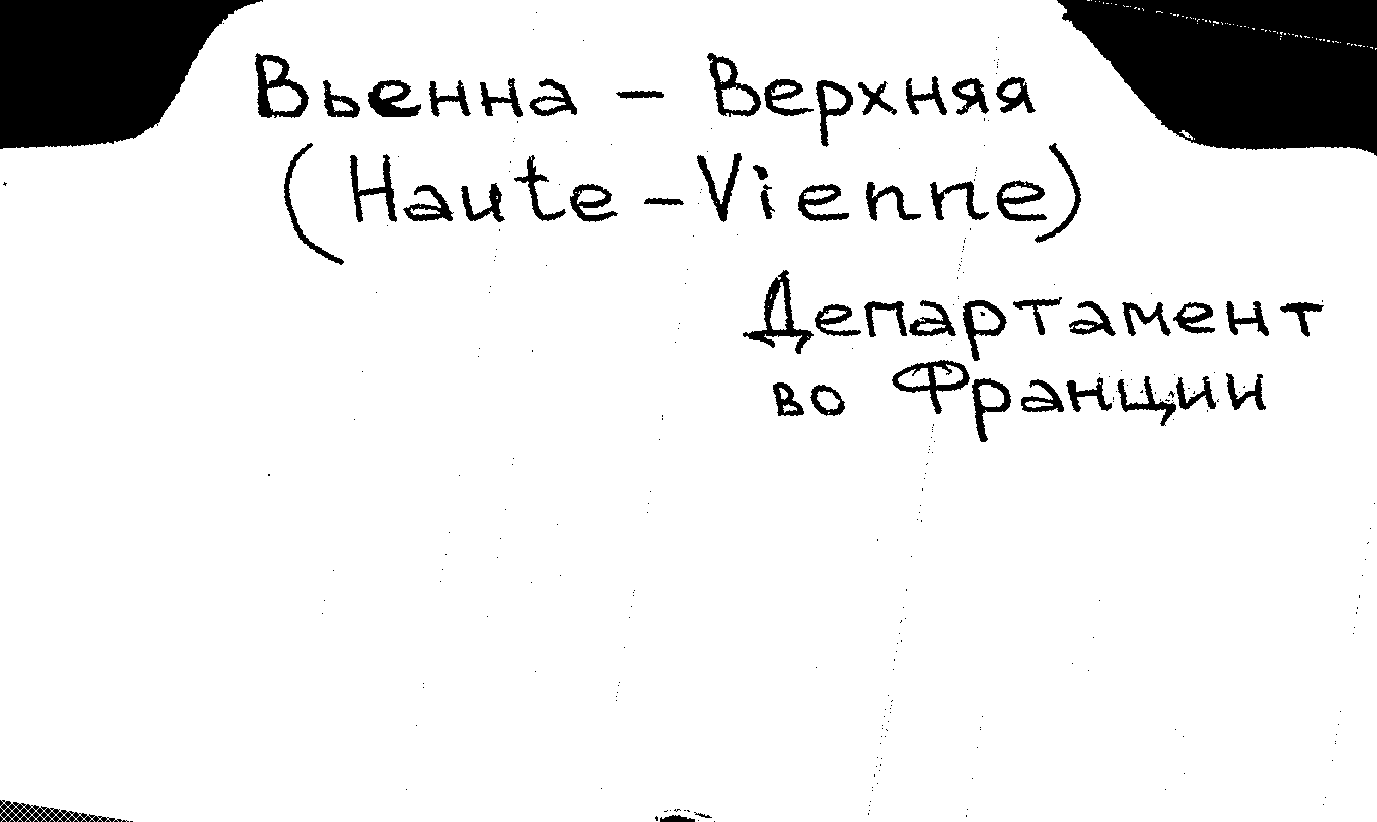 Вьенна - Верхняя
(Haute - Vienne)
Департамент
во Франции